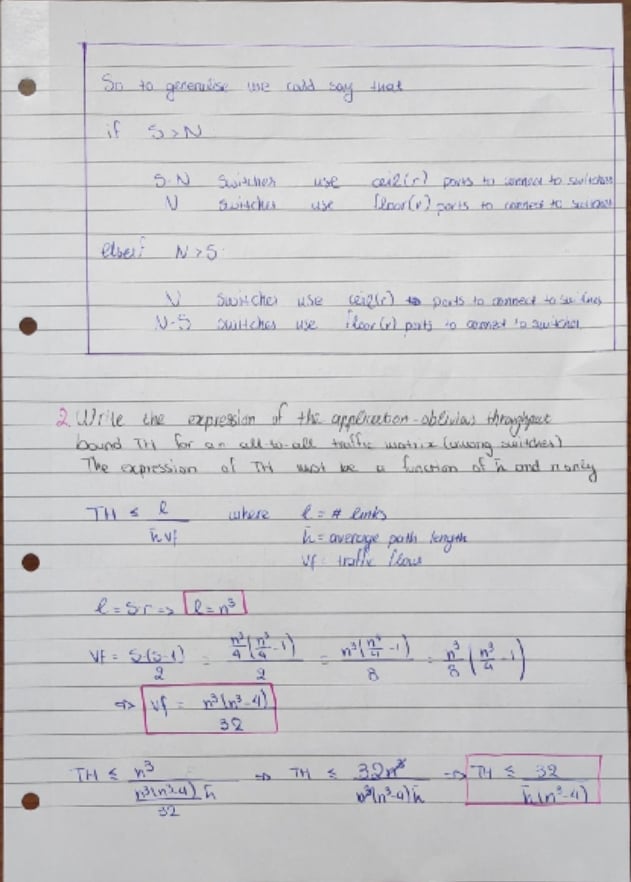 So to generalise we could say that
if S>N
S-N switches use ceil(r) ports to connect to switches
N switches use floor(r) ports to connect to switches
elseif N>S
N switches use ceil(r) to ports to connect to switches
N-S switches use floor(r) ports to connect to switches
2. Write the expression of the application-oblivious throughput
bound TH for an all-to-all traffic matrix (among switches)
The expression of TH must be a function of h̄ and n only
TH ≤ l / h̄ vf where l = # links
h̄ = average path length
vf = traffic flows
l = Sr => l = n³
VF = S(S-1)/2 = n³/4 (n³/4 - 1) / 2 = n³(n³/4 - 1) / 8 = n³/8 (n³/4 - 1)
=> vf = n³(n³-4) / 32
TH ≤ n³ / (n³(n³-4)/32 h̄) => TH ≤ 32n³ / n³(n³-4)h̄ => TH ≤ 32 / h̄(n³-4)